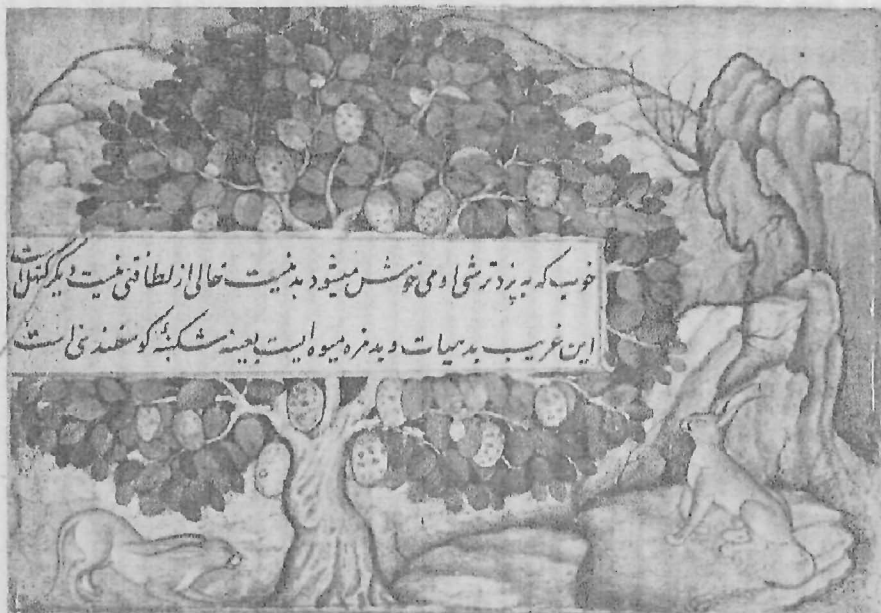 خوب که به پزد ترشی او می خوش میشود بد نیست خالی از لطافتی نیست دیگر کتهل است
این غریب بدهیات و بدمزه میوه ایست بعینه شکنبهٔ گوسفندی است